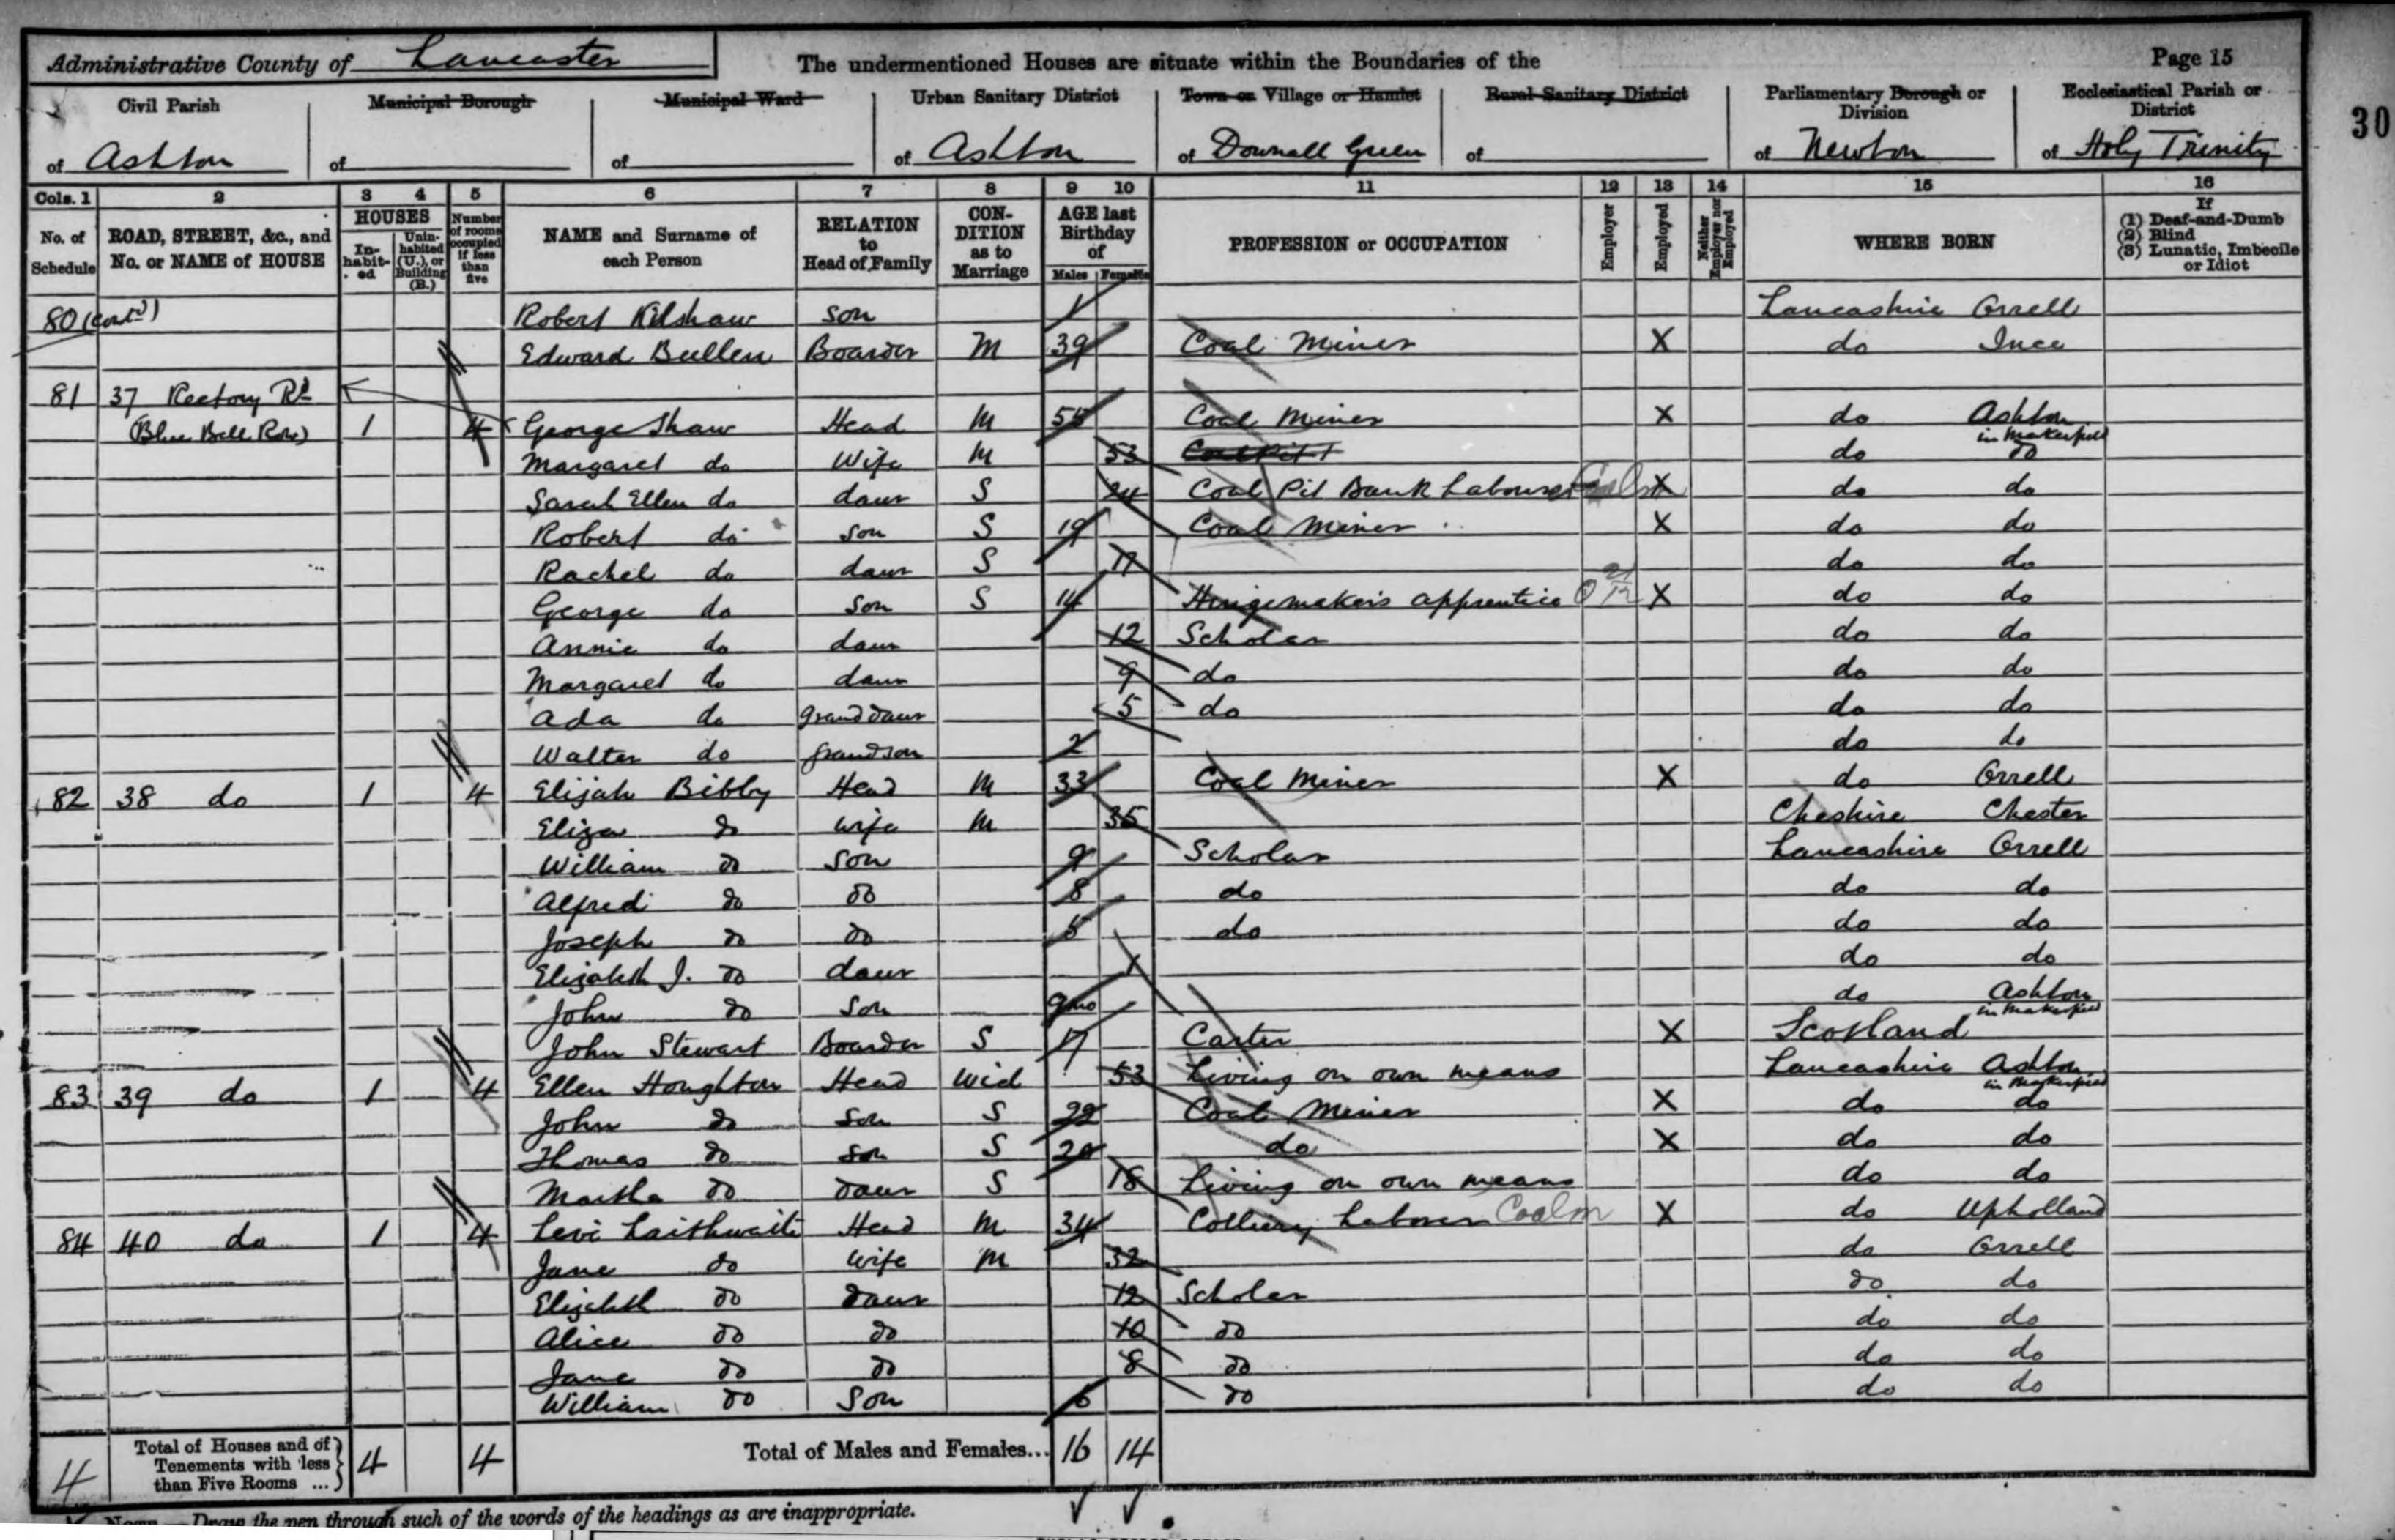 Administrative County of Lancaster The undermentioned Houses are situate within the Boundaries of the Page 15
Civil Parish Municipal Borough Municipal Ward Urban Sanitary District Town or Village or Hamlet Rural Sanitary District Parliamentary Borough or Division Ecclesiastical Parish or District
30
of Ashton of of of Ashton of Downall Green of of Newton of Holy Trinity
Cols. 1 2 3 4 5 6 7 8 9 10 11 12 13 14 15 16
No. of Schedule ROAD, STREET, &c., and No. or NAME of HOUSE HOUSES Inhabited Uninhabited (U.), or Building (B.) Number of rooms occupied if less than five NAME and Surname of each Person RELATION to Head of Family CONDITION as to Marriage AGE last Birthday of Males Females PROFESSION or OCCUPATION Employer Employed Neither Employer nor Employed WHERE BORN If (1) Deaf-and-Dumb (2) Blind (3) Lunatic, Imbecile or Idiot
80 (cont'd) Robert Kilshaw son 1 Lancashire Orrell
Edward Bullen Boarder M 39 Coal Miner X do Ince
81 37 Rectory Rd
(Blue Bell Row) 1 4 George Shaw Head M 55 Coal Miner X do Ashton in Makerfield
Margaret do Wife M 53 Coal Pit do do
Sarah Ellen do daur S 24 Coal Pit Bank Labourer X do do
Robert do son S 19 Coal Miner X do do
Rachel do daur S 17 do do
George do Son S 14 Hingemakers apprentice X do do
Annie do daur 12 Scholar do do
Margaret do daur 9 do do do
Ada do grand daur 5 do do do
Walter do grandson 2 do do
82 38 do 1 4 Elijah Bibby Head M 33 Coal Miner X do Orrell
Eliza do wife M 35 Cheshire Chester
William do son 9 Scholar Lancashire Orrell
Alfred do do 8 do do do
Joseph do do 5 do do do
Elizabeth J. do daur 1 do do
John do Son 9mo do Ashton in Makerfield
John Stewart Boarder S 17 Carter X Scotland
83 39 do 1 4 Ellen Houghton Head Wid 53 Living on own means Lancashire Ashton in Makerfield
John do son S 22 Coal Miner X do do
Thomas do son S 20 do X do do
Martha do daur S 18 Living on own means do do
84 40 do 1 4 Levi Laithwaite Head M 34 Colliery Laborer Coal m X do Upholland
Jane do wife M 32 do Orrell
Elizabeth do daur 12 Scholar do do
Alice do do 10 do do do
Jane do do 8 do do do
William do Son 6 do do do
4 Total of Houses and of Tenements with less than Five Rooms ... 4 4 Total of Males and Females... 16 14
NOTE.—Draw the pen through such of the words of the headings as are inappropriate.